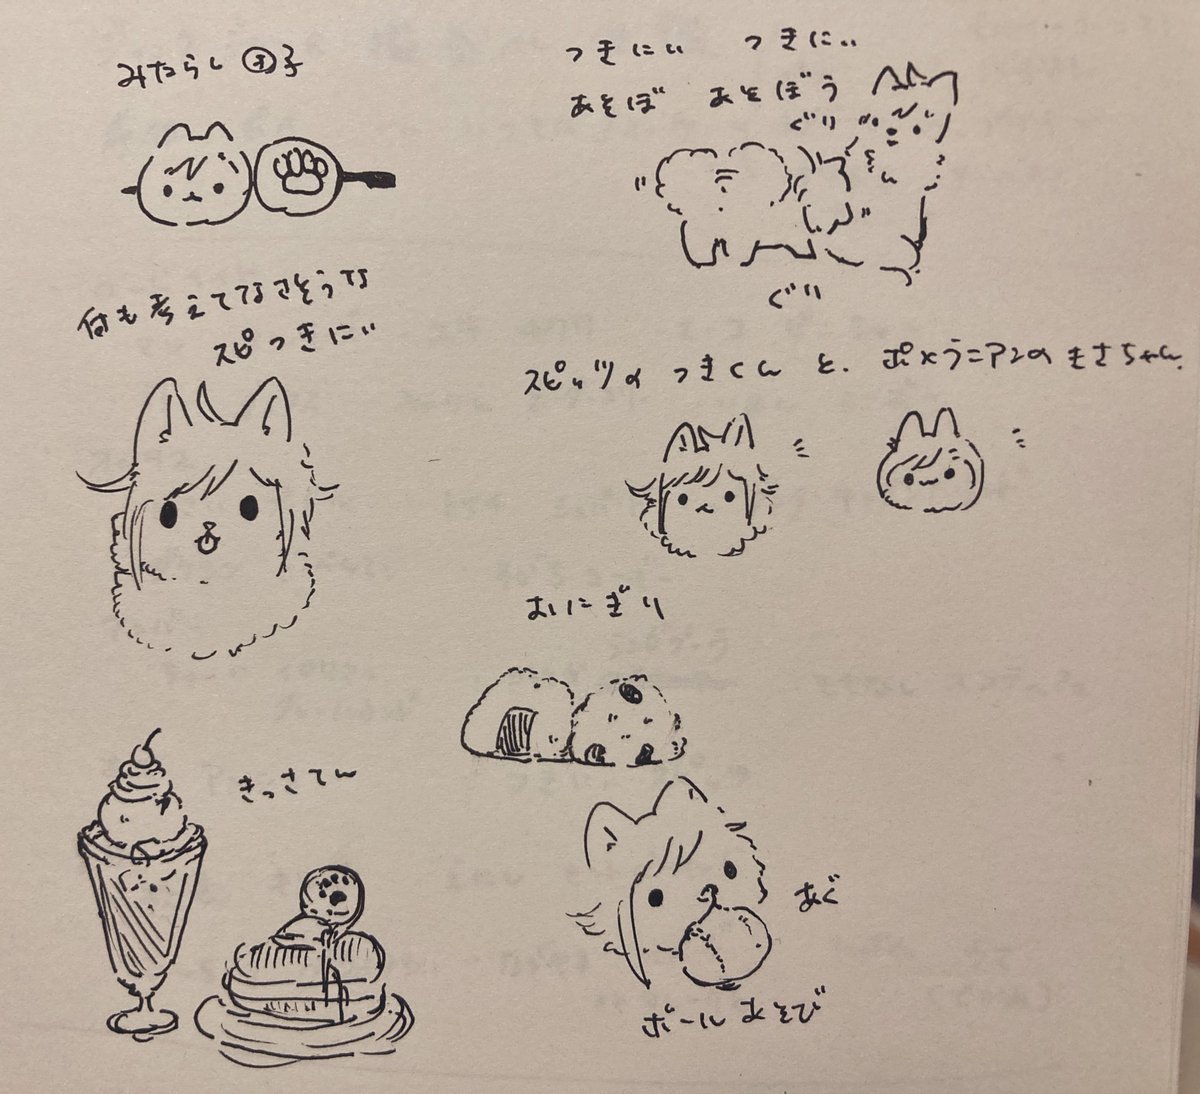 みたらし㋔子
つきにぃ つきにぃ
あそぼ あそぼう
ぐり
ぐり
何も考えてなさそうな
スピつきにぃ
スピッツの つきくん と、ポメラニアンの もさちゃん.
おにぎり
きっさてん
あぐ
ボールあそび